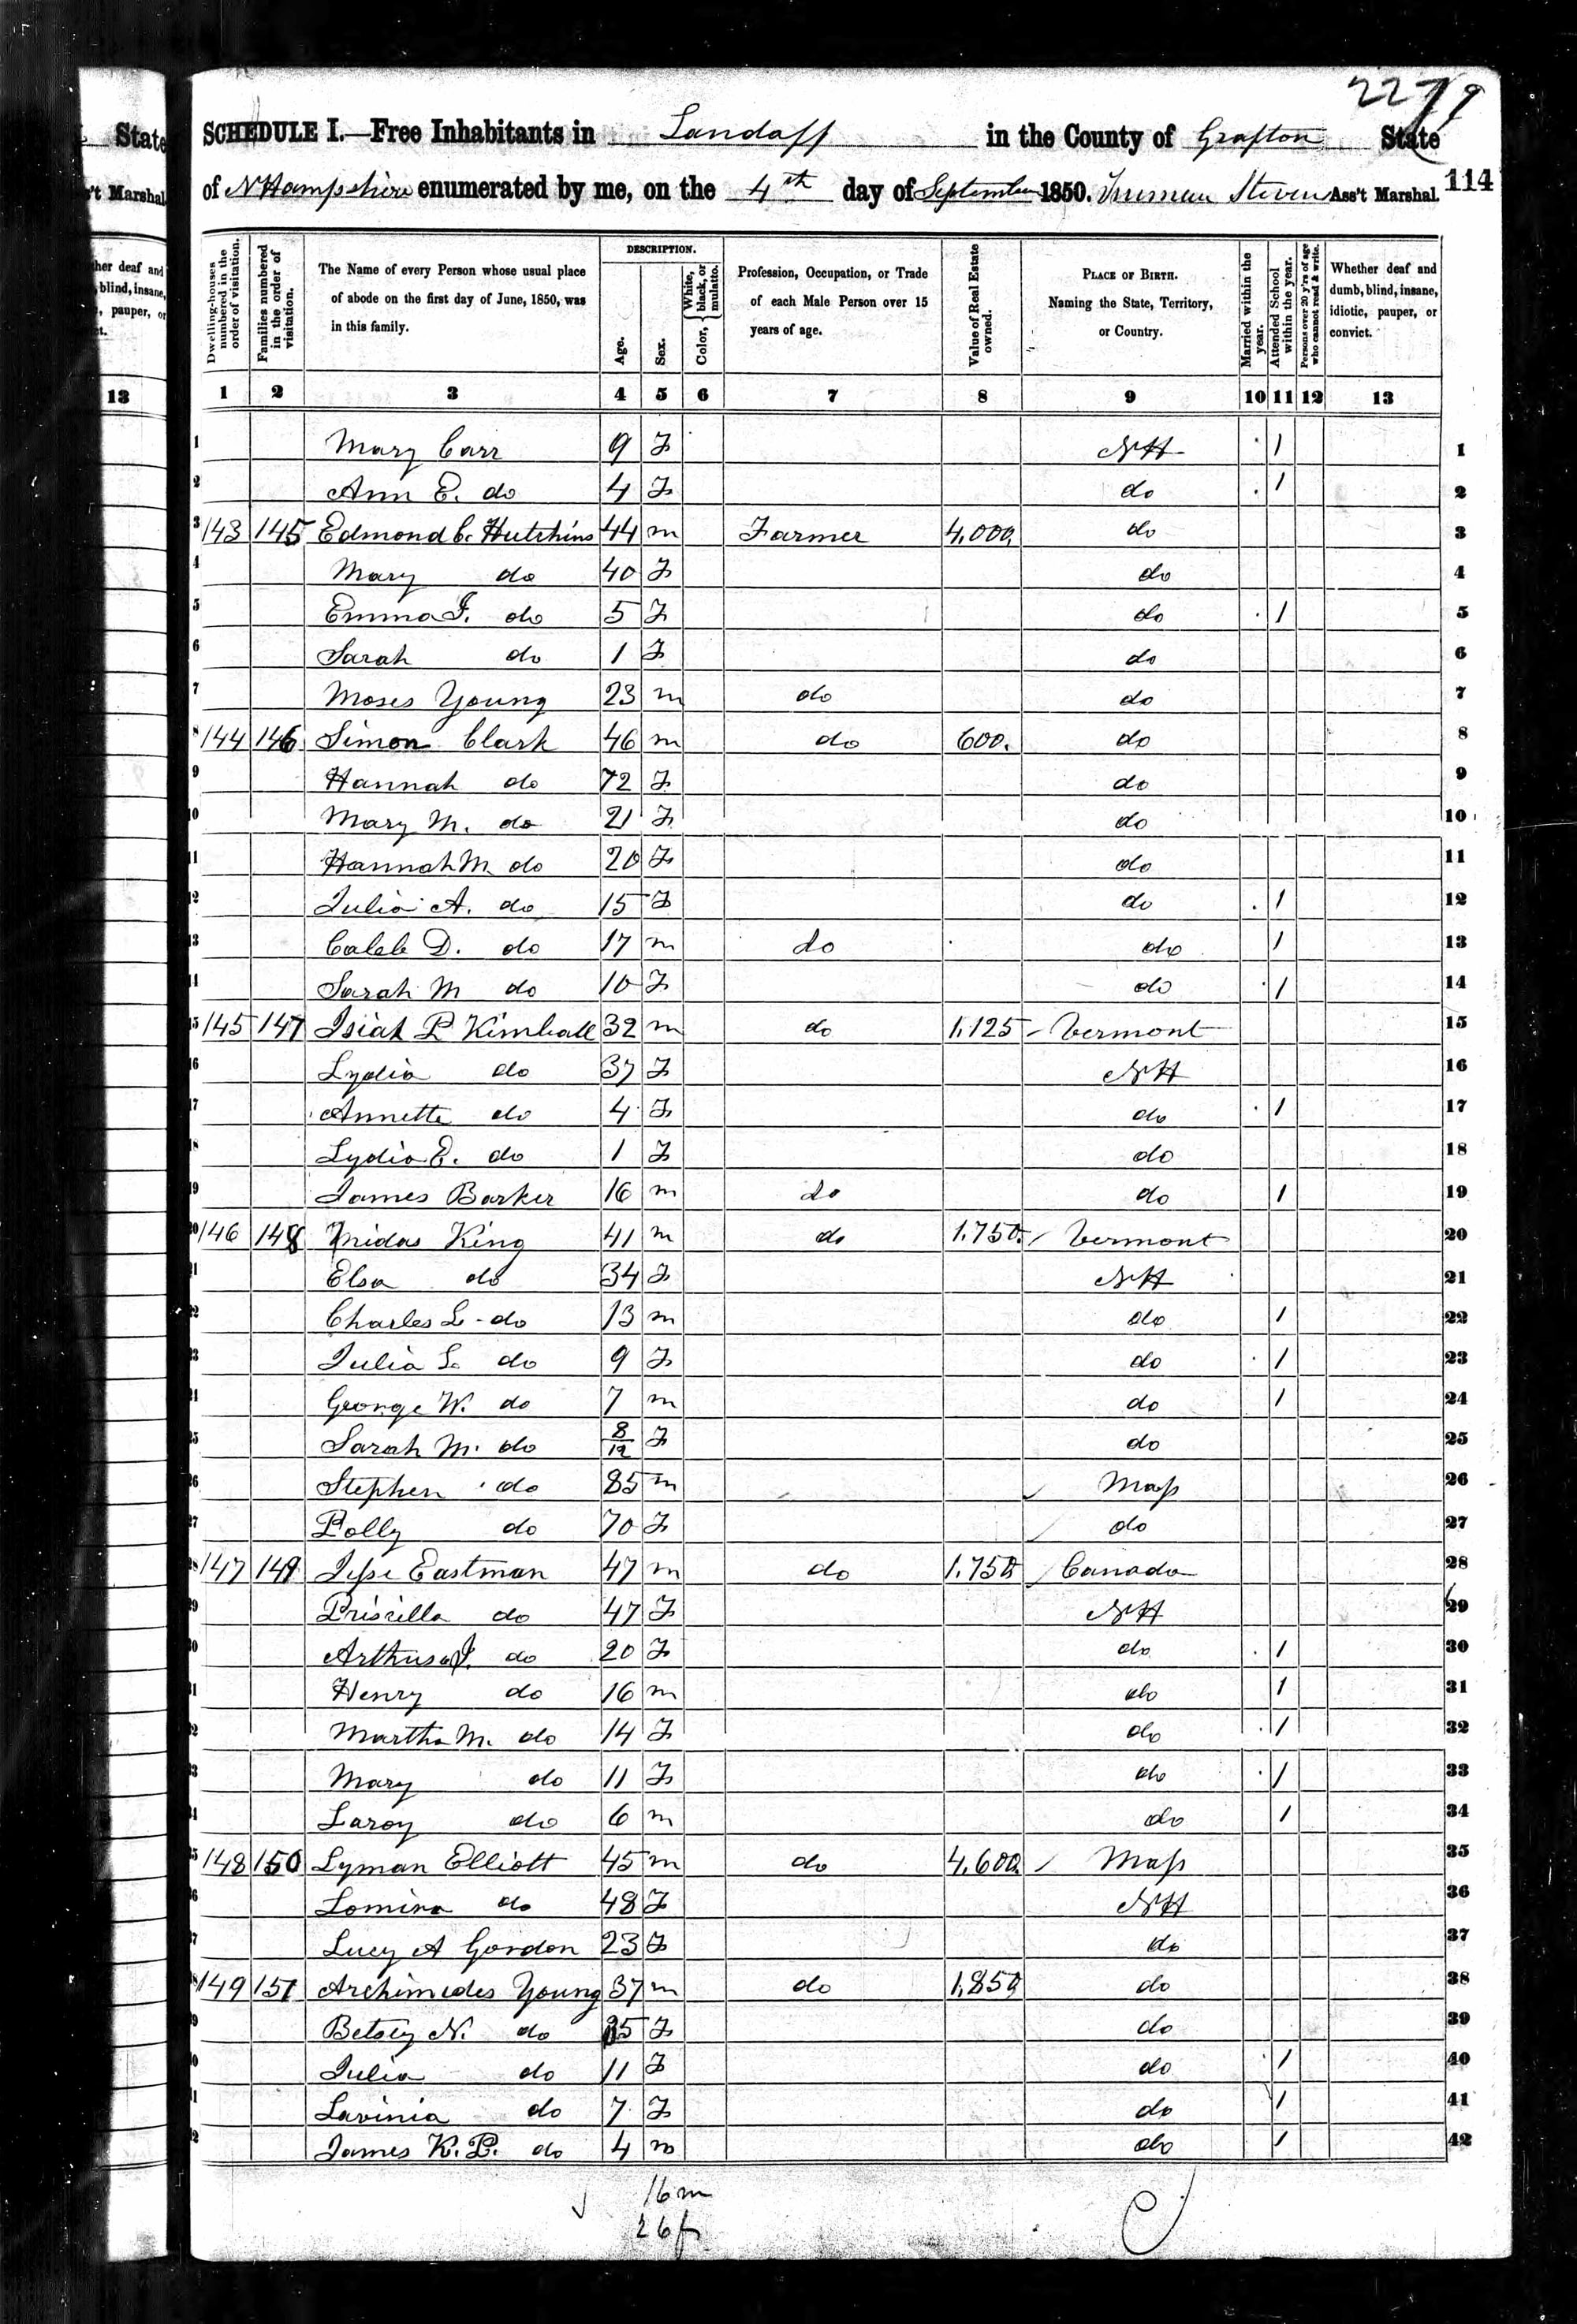 2279
SCHEDULE I.—Free Inhabitants in Landaff in the County of Grafton State
of N Hampshire enumerated by me, on the 4th day of September 1850. Truman Stevens Ass't Marshal. 114
State
's't Marshal.
her deaf and
, blind, insane,
, pauper, or
ct.
13
Dwelling-houses numbered in the order of visitation.
Families numbered in the order of visitation.
The Name of every Person whose usual place of abode on the first day of June, 1850, was in this family.
DESCRIPTION.
Age.
Sex.
Color, { White, black, or mulatto.
Profession, Occupation, or Trade of each Male Person over 15 years of age.
Value of Real Estate owned.
PLACE OF BIRTH. Naming the State, Territory, or Country.
Married within the year.
Attended School within the year.
Persons over 20 y'rs of age who cannot read & write.
Whether deaf and dumb, blind, insane, idiotic, pauper, or convict.
1 2 3 4 5 6 7 8 9 10 11 12 13
1 Mary Carr 9 F NH 1 1
2 Ann E. do 4 F do 1 2
3 143 145 Edmond C. Hutchins 44 m Farmer 4,000 do 3
4 Mary do 40 F do 4
5 Emma F. do 5 F do 1 5
6 Sarah do 1 F do 6
7 Moses Young 23 m do do 7
8 144 146 Simon Clark 46 m do 600. do 8
9 Hannah do 72 F do 9
10 Mary M. do 21 F do 10
11 Hannah M. do 20 F do 11
12 Julia A. do 15 F do 1 12
13 Caleb D. do 17 m do do 1 13
14 Sarah M do 10 F do 1 14
15 145 147 Isiah P Kimball 32 m do 1,125 Vermont 15
16 Lydia do 37 F NH 16
17 Annette do 4 F do 1 17
18 Lydia E. do 1 F do 18
19 James Barker 16 m do do 1 19
20 146 148 Midas King 41 m do 1,750. Vermont 20
21 Elsa do 34 F NH 21
22 Charles L. do 13 m do 1 22
23 Julia S. do 9 F do 1 23
24 George W. do 7 m do 1 24
25 Sarah M. do 8/12 F do 25
26 Stephen do 85 m Mass 26
27 Polly do 70 F do 27
28 147 149 Jesse Eastman 47 m do 1,750 Canada 28
29 Prisilla do 47 F NH 29
30 Arthusa J. do 20 F do 1 30
31 Henry do 16 m do 1 31
32 Martha M. do 14 F do 1 32
33 Mary do 11 F do 1 33
34 Laroy do 6 m do 1 34
35 148 150 Lyman Elliott 45 m do 4,600 Mass 35
36 Lomira do 48 F NH 36
37 Lucy A Gordon 23 F do 37
38 149 151 Archimedes Young 37 m do 1,850 do 38
39 Betsey N. do 35 F do 39
40 Julia do 11 F do 1 40
41 Lavinia do 7 F do 1 41
42 James K. P. do 4 m do 1 42
16 m
26 f